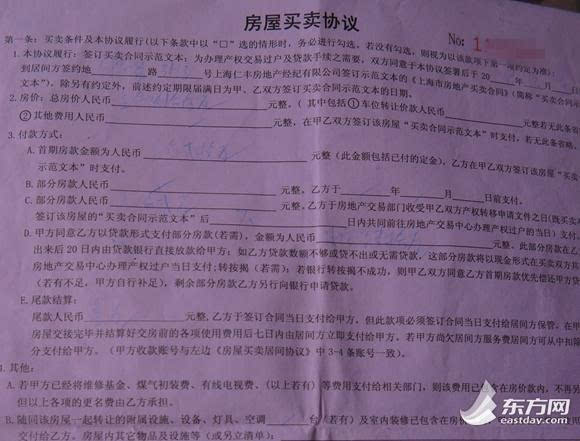 房屋买卖协议
No: 1
第一条：买卖条件及本协议履行(以下条款中以“□”选的情形时，务必进行勾选，若没有勾选，则视为以该款项下第一项约定为准)：
1.本协议履行：签订买卖示范文本：为办理产权交易过户及贷款手续之需要，双方同意于本协议签署后于 20 年 月 日
到居间方签约地 路 号上海仁丰房地产经纪有限公司签订示范文本的《上海市房地产买卖合同》(简称“买卖合同示
文本”)。除另有约定外，前述约定期限届满日为甲、乙双方签订买卖合同示范文本的日期。
2.房价：①总房价人民币 元整，( 其中包括①车位转让价人民币 元整若无此备
②其他费用人民币 元整，在甲乙双方签订该房屋“买卖合同示范文本”时支付，若无此备省略。
3.付款方式：
A.首期房款金额为人民币 元整（此金额包括已付的定金），乙方在甲乙双方签订该房屋“买卖
示范文本”时支付。
B.部分房款人民币 元整，乙方于 年 月 日前支付。
C.部分房款人民币 元整，乙方于房地产交易部门收受甲乙双方产权转移申请文件之日(既买卖
签订该房屋的“买卖合同示范文本”后 日内共同前往房地产交易中心办理产权过户的当日)支付。
D.甲方同意乙方以贷款形式支付部分房款(若需)，金额为人民币 元整，此部分房款在乙
出来后 20 日内由贷款银行直接放款给甲方；如乙方贷款数额不够或贷不出或无需贷款，这部分房款将以现金形式在买卖双方共
房地产交易中心办理产权过户当日支付;转按揭（若需)：若银行转按揭不成功，则甲乙双方同意乙方首期房款优先偿还甲方贷
(若有不足，甲方自行补足)，剩余部分房款乙方另行向银行申请贷款。
E.尾款结算：
尾款人民币 元整，乙方于签订合同当日支付给甲方，但此款项必须签订合同当日支付给居间方保管。在甲
房屋交接完毕并结算好交房前的各项使用费用后七日内由居间方立即支付给甲方。若甲方尚欠居间方服务费居间方可从中扣除
分支付给甲方。（甲方收款账号与左边《房屋买卖居间协议》中 3-4 条账号一致）。
4.其他：
A.若甲方已经将维修基金、煤气初装费、有线电视费、(以上若有）等费用支付给相关部门，则该费用已包含在房价款内，不再另
但以上各项的更名费由乙方承担。
B.随同该房屋一起转让的附属设施、设备、灯具、空调 台（若有）及室内装修已包含在房价
交付给乙方。房屋内其它物品及设施等（或另立清单)：
东方网
eastday.com